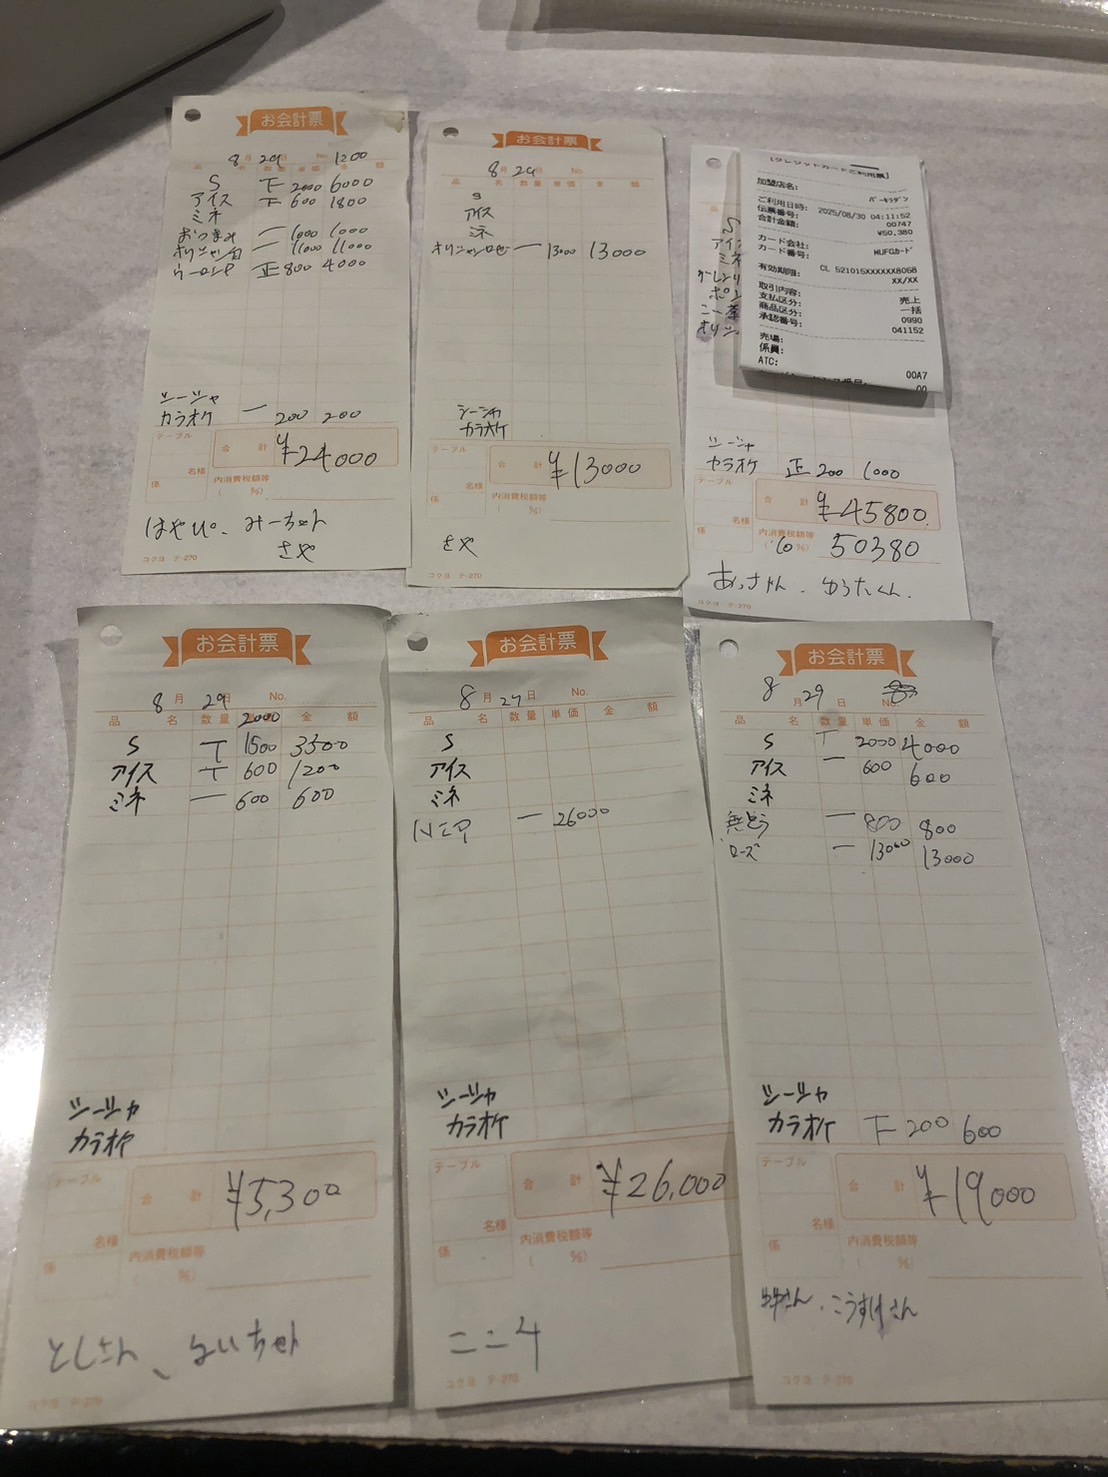 お会計票
8月29日 No. 1200
品 名 数量 単価 金 額
S 下 2000 6000
アイス 下 600 1800
ミネ
おつまみ 一 1000 1000
オリシャン白 一 11000 11000
ウーロンP 正 800 4000
シーシャ
カラオケ 一 200 200
テーブル
合 計 ¥24000
名様
係
内消費税額等
( %)
はやぴ、みーちゃん
さや
コクヨ テ-270
お会計票
8月29日 No.
品 名 数量 単価 金 額
S
アイス
ミネ
オリシャンロゼ 一 13000 13000
シーシャ
カラオケ
テーブル
合 計 ¥13000
名様
係
内消費税額等
( %)
さや
コクヨ テ-270
[クレジットカードご利用票]
加盟店名:
バーキラダン
ご利用日時: 2025/08/30 04:11:52
伝票番号: 00747
合計金額: ¥50,380
カード会社: MUFGカード
カード番号:
CL 521015XXXXXX8068
有効期限: XX/XX
取引内容: 売上
支払区分: 一括
商品区分: 0990
承認番号: 041152
売場:
係員:
ATC: 00A7
00
S
アイ
ミネ
ポン
オリシ
シーシャ
カラオケ 正 200 1000
テーブル
合 計 ¥45800
名様
係
内消費税額等
(10%) 50380
あっちゃん、ゆうたくん
コクヨ テ-270
お会計票
8月29日 No.
品 名 数量 2000 金 額
S T 1500 3500
アイス T 600 1200
ミネ 一 600 600
シーシャ
カラオケ
テーブル
合 計 ¥5,300
名様
係
内消費税額等
( %)
としさん、るいちゃん
コクヨ テ-270
お会計票
8月29日 No.
品 名 数量 単価 金 額
S
アイス
ミネ
一 26000
シーシャ
カラオケ
テーブル
合 計 ¥26,000
名様
係
内消費税額等
( %)
ここ4
コクヨ テ-270
お会計票
8月29日
品 名 数量 単価 金 額
S T 2000 4000
アイス 一 600 600
ミネ
無とう 一 800 800
ローズ 一 13000 13000
シーシャ
カラオケ 下 200 600
テーブル
合 計 ¥19000
名様
係
内消費税額等
( %)
こうすけさん
コクヨ テ-270